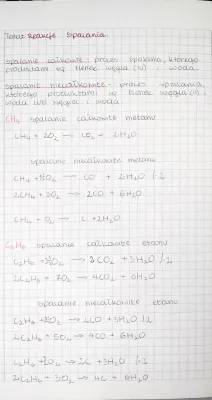 Temat: Reakcje Spalania
spalanie całkowite - proces spalania, którego
produktami są tlenek węgla (IV) i woda.
spalanie niecałkowite - proces spalania,
którego produktami są tlenek węgla (II) i
woda lub węgiel i woda.
CH4 spalanie całkowite metanu
CH4 + 2O2 → CO2 + 2H2O
spalanie niecałkowite metanu
2CH4 + 3O2 → 2CO + 4H2O
CH4 + O2 → C + 2H2O
C2H6 spalanie całkowite etanu
2C2H6 + 7O2 → 4CO2 + 6H2O
spalanie niecałkowite etanu
2C2H6 + 5O2 → 4CO + 6H2O
2C2H6 + 3O2 → 4C + 6H2O